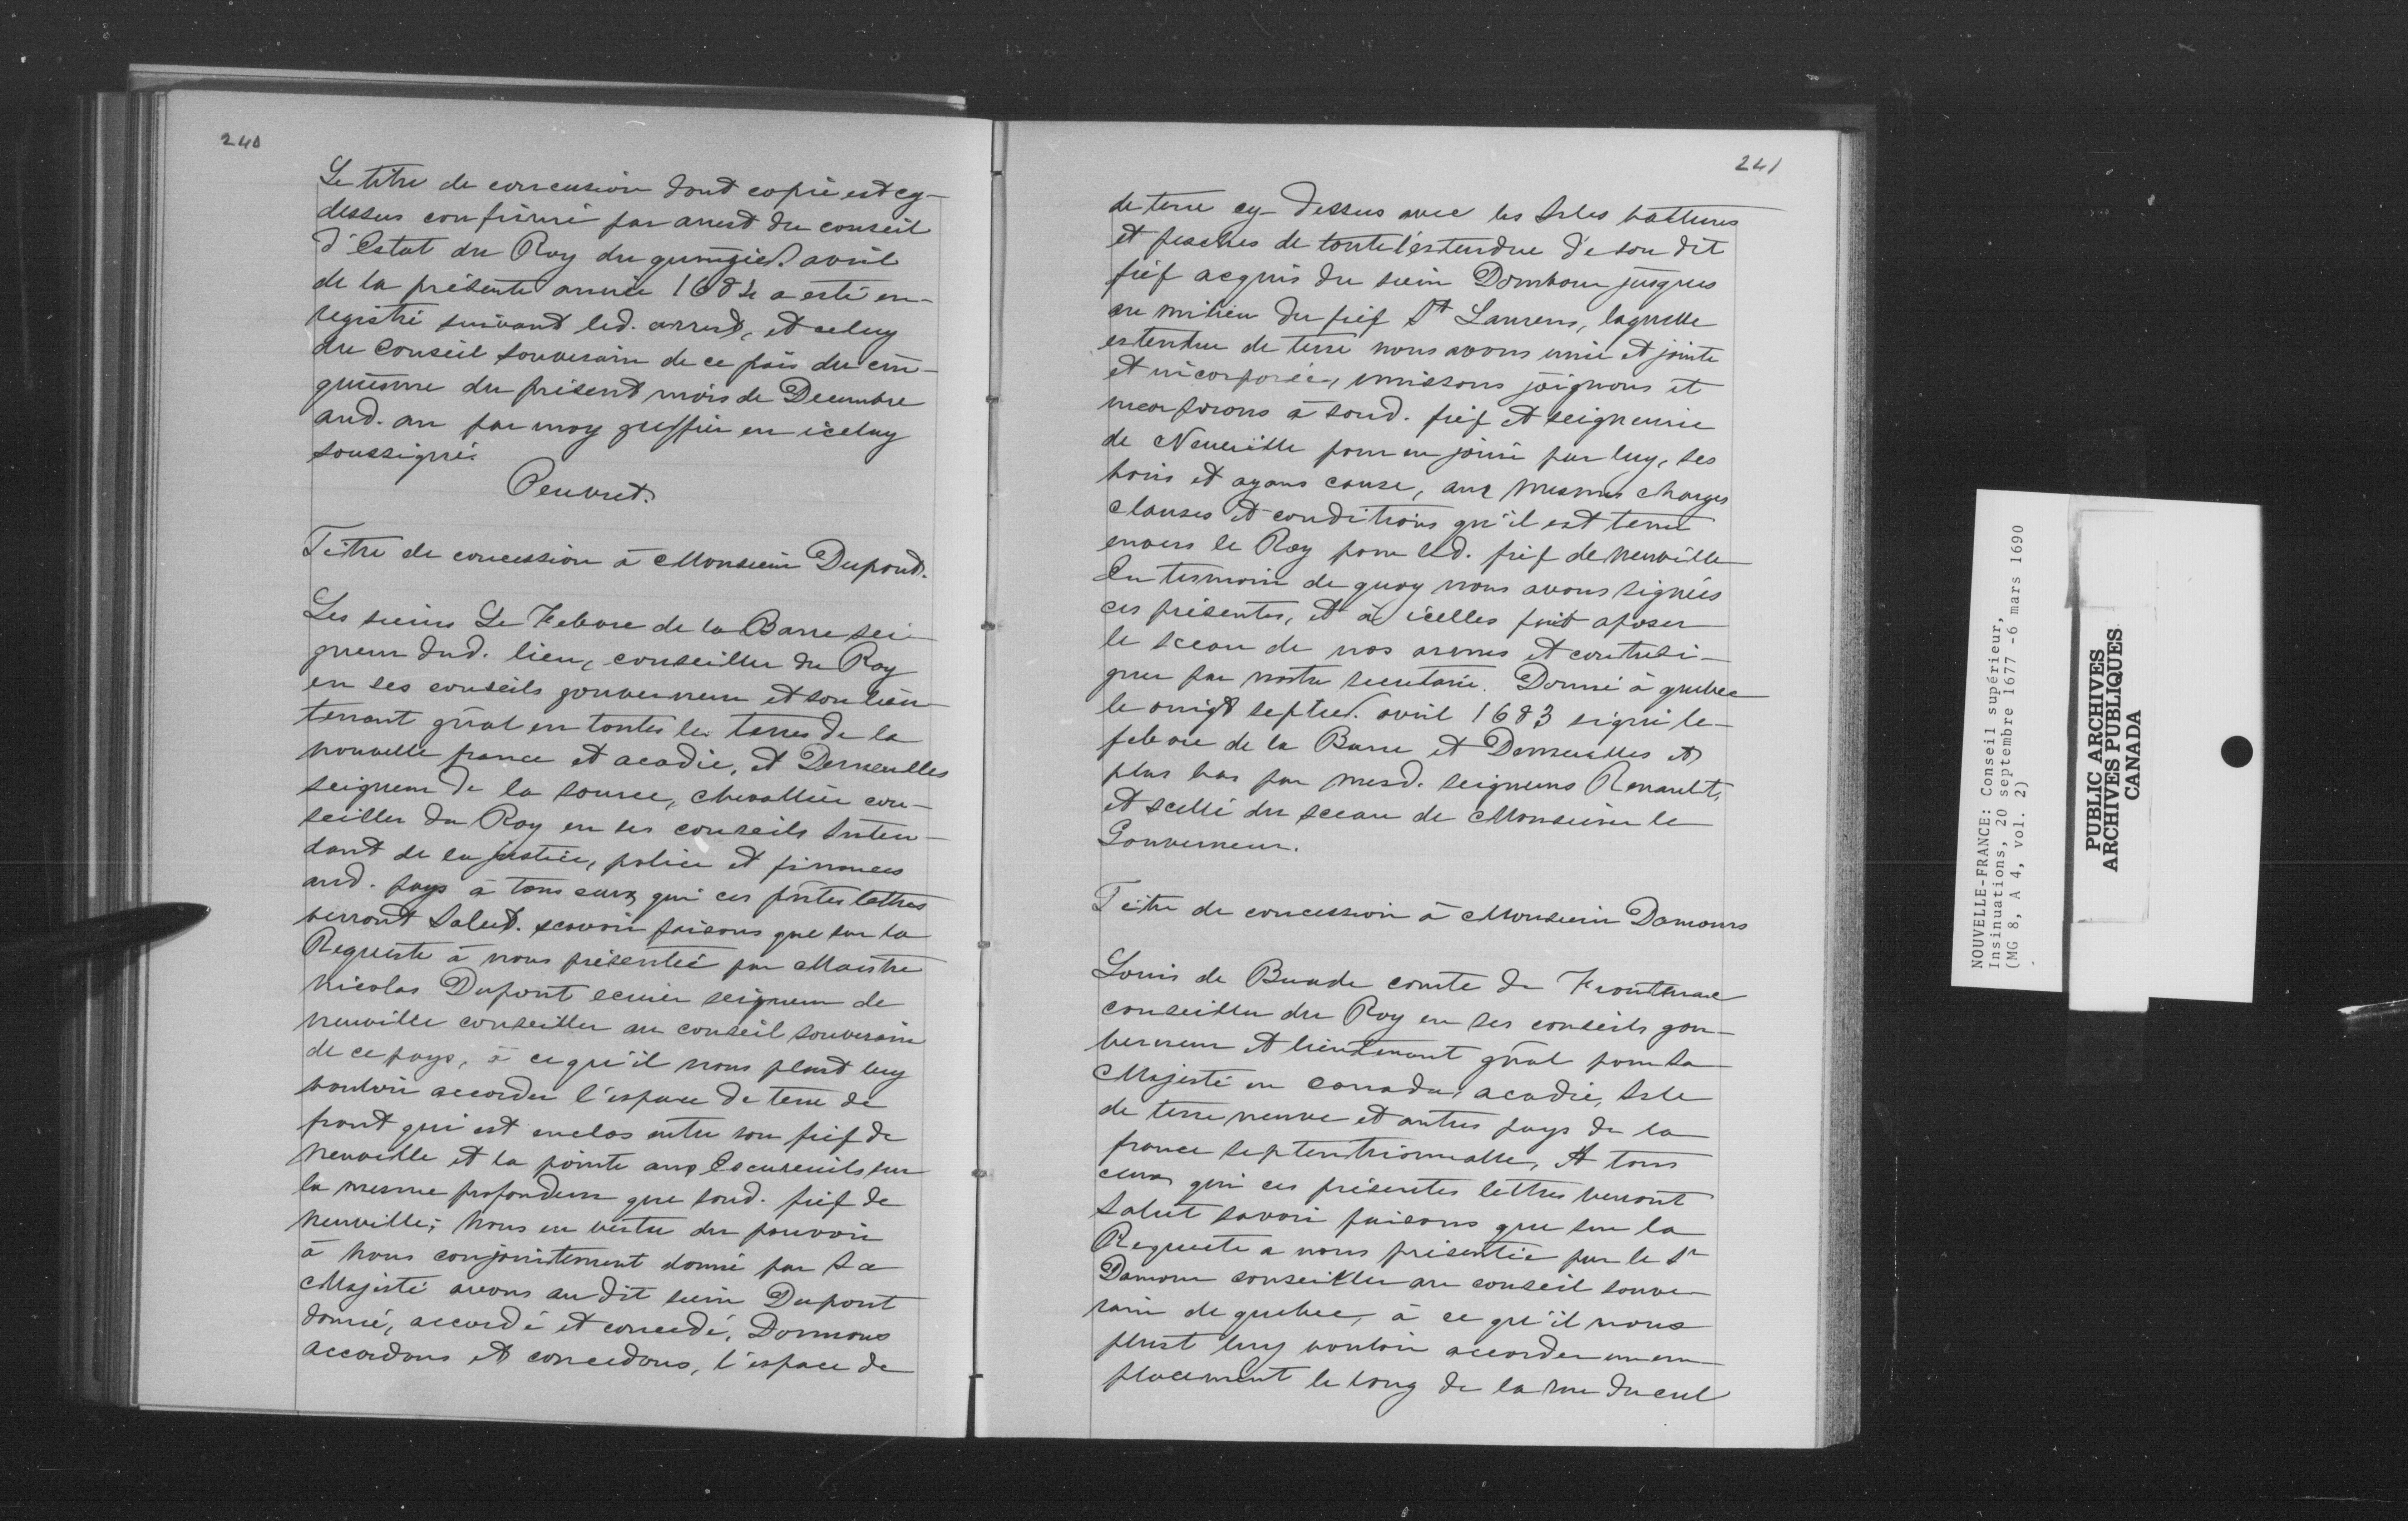 240
Le titre de concession dont copie est cy-
dessus confirmé par arrest du conseil
d'Estat du Roy du quinzied. avril
de la présente année 1684 a esté en-
registré suivant led. arrest, et celuy
du Conseil souverain de ce païs du cin-
quiesme du présent mois de Decembre
aud. an par moy greffier en iceluy
soussigné.
Peuvret.
Titre de concession à Monsieur Dupont.
Les sieurs Le Febvre de la Barre sei-
gneur dud. lieu, conseiller du Roy
en ses conseils gouverneur et son lieu-
tenant gñal en toutes les terres de la
nouvelle france et acadie, et Demeulles
seigneur de la source, chevallier con-
seiller du Roy en ses conseils Inten-
dant de la justice, police et finances
aud. pays à tous ceux qui ces pñtes lettres
verront Salut. scavoir faisons que sur la
Requeste à nous présentée par Maistre
Nicolas Dupont ecuier seigneur de
neuville conseiller au conseil souverain
de ce pays, à ce qu'il nous plust luy
vouloir accorder l'espace de terre de
front qui est enclos entre son fief de
Neuville et la pointe aux Escureuils sur
la mesme profondeur que sond. fief de
Neuville; Nous en vertu du pouvoir
à Nous conjointement donné par Sa
Majesté avons au dit sieur Dupont
donné, accordé et concedé, Donnons
accordons et concedons, l'espace de
241
de terre cy-dessus avec les Isles battures
et pesches de toute l'estendue de son dit
fief acquis du sieur Dombour jusques
au milieu du fief St Laurens, laquelle
estendue de terre nous avons unie et jointe
et incorporée, unissons joignons et
incorporons à sond. fief et seigneurie
de Neuville pour en jouir par luy, ses
hoirs et ayans cause, aux mesmes charges
clauses et conditions qu'il est tenu
envers le Roy pour led. fief de neuville
En tesmoin de quoy nous avons signées
ces présentes, et à icelles fait aposer
le sceau de nos armes et contresi-
gner par nostre secretaire. Donné à quebec
le vingt septies. avril 1683 signé le-
febvre de la Barre et Demeulles et
plus bas par mesd. seigneurs Renault,
et scellé du sceau de Monsieur le
Gouverneur.
Titre de concession à Monsieur Damours
Louis de Buade comte de Frontenac
conseiller du Roy en ses conseils gou-
verneur et lieutenant gñal pour sa
Majesté en Canada, acadie, Isle
de terre neuve et autres pays de la
france septentrionnalle, A tous
ceux qui ces présentes lettres verront
Salut savoir faisons que sur la
Requeste a nous présentée par le Sr
Damour conseiller au conseil souve-
rain de quebec, à ce qu'il nous
plust luy vouloir accorder un em-
placement le long de la rue du cul
NOUVELLE-FRANCE: Conseil supérieur,
Insinuations, 20 septembre 1677 -6 mars 1690
(MG 8, A 4, vol. 2)
PUBLIC ARCHIVES
ARCHIVES PUBLIQUES
CANADA